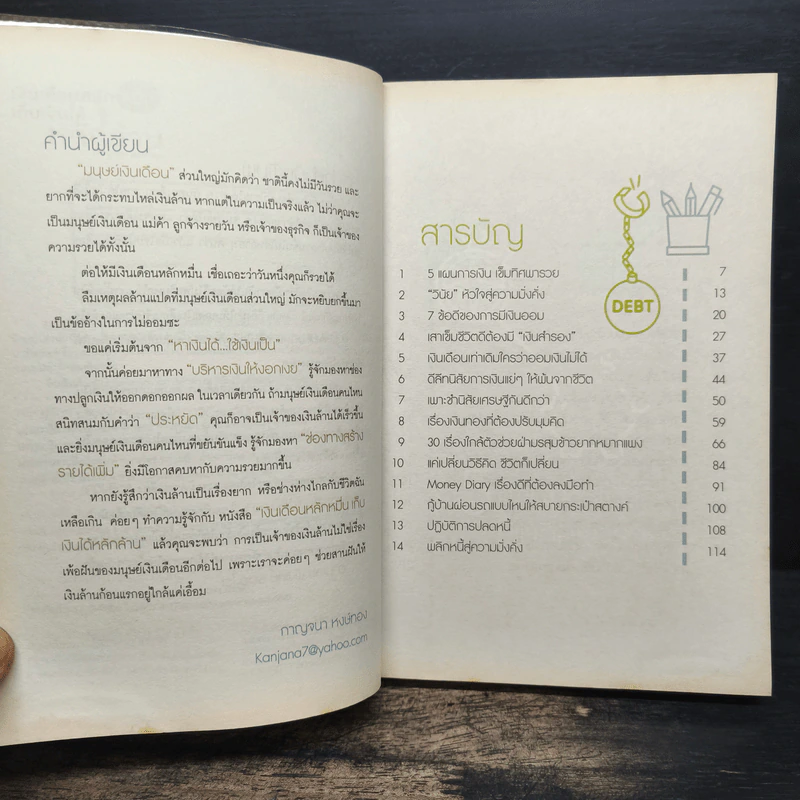 คำนำผู้เขียน
"มนุษย์เงินเดือน" ส่วนใหญ่มักคิดว่า ชาตินี้คงไม่มีวันรวย และ
ยากที่จะได้กระทบไหล่เงินล้าน หากแต่ในความเป็นจริงแล้ว ไม่ว่าคุณจะ
เป็นมนุษย์เงินเดือน แม่ค้า ลูกจ้างรายวัน หรือเจ้าของธุรกิจ ก็เป็นเจ้าของ
ความรวยได้ทั้งนั้น
ต่อให้มีเงินเดือนหลักหมื่น เชื่อเถอะว่าวันหนึ่งคุณก็รวยได้
ลืมเหตุผลล้านแปดที่มนุษย์เงินเดือนส่วนใหญ่ มักจะหยิบยกขึ้นมา
เป็นข้ออ้างในการไม่ออมซะ
ขอแค่เริ่มต้นจาก "หาเงินได้...ใช้เงินเป็น"
จากนั้นค่อยมาหาทาง "บริหารเงินให้งอกเงย" รู้จักมองหาช่อง
ทางปลูกเงินให้ออกดอกออกผล ในเวลาเดียวกัน ถ้ามนุษย์เงินเดือนคนไหน
สนิทสนมกับคำว่า "ประหยัด" คุณก็อาจเป็นเจ้าของเงินล้านได้เร็วขึ้น
และยิ่งมนุษย์เงินเดือนคนไหนที่ขยันขันแข็ง รู้จักมองหา "ช่องทางสร้าง
รายได้เพิ่ม" ยิ่งมีโอกาสคบหากับความรวยมากขึ้น
หากยังรู้สึกว่าเงินล้านเป็นเรื่องยาก หรือช่างห่างไกลกับชีวิตฉัน
เหลือเกิน ค่อยๆ ทำความรู้จักกับ หนังสือ "เงินเดือนหลักหมื่น เก็บ
เงินได้หลักล้าน" แล้วคุณจะพบว่า การเป็นเจ้าของเงินล้านไม่ใช่เรื่อง
เพ้อฝันของมนุษย์เงินเดือนอีกต่อไป เพราะเราจะค่อยๆ ช่วยสานฝันให้
เงินล้านก้อนแรกอยู่ใกล้แค่เอื้อม
กาญจนา หงษ์ทอง
Kanjana7@yahoo.com
สารบัญ
DEBT
1 5 แผนการเงิน เข็มทิศพารวย 7
2 "วินัย" หัวใจสู่ความมั่งคั่ง 13
3 7 ข้อดีของการมีเงินออม 20
4 เสาเข็มชีวิตดีต้องมี "เงินสำรอง" 27
5 เงินเดือนเท่าเดิมใครว่าออมเงินไม่ได้ 37
6 ดีลีทนิสัยการเงินแย่ๆ ให้พ้นจากชีวิต 44
7 เพาะชำนิสัยเศรษฐีกันดีกว่า 50
8 เรื่องเงินทองที่ต้องปรับมุมคิด 59
9 30 เรื่องใกล้ตัวช่วยฝ่ามรสุมข้าวยากหมากแพง 66
10 แค่เปลี่ยนวิธีคิด ชีวิตก็เปลี่ยน 84
11 Money Diary เรื่องดีที่ต้องลงมือทำ 91
12 กู้บ้านผ่อนรถแบบไหนให้สบายกระเป๋าสตางค์ 100
13 ปฏิบัติการปลดหนี้ 108
14 พลิกหนี้สู่ความมั่งคั่ง 114